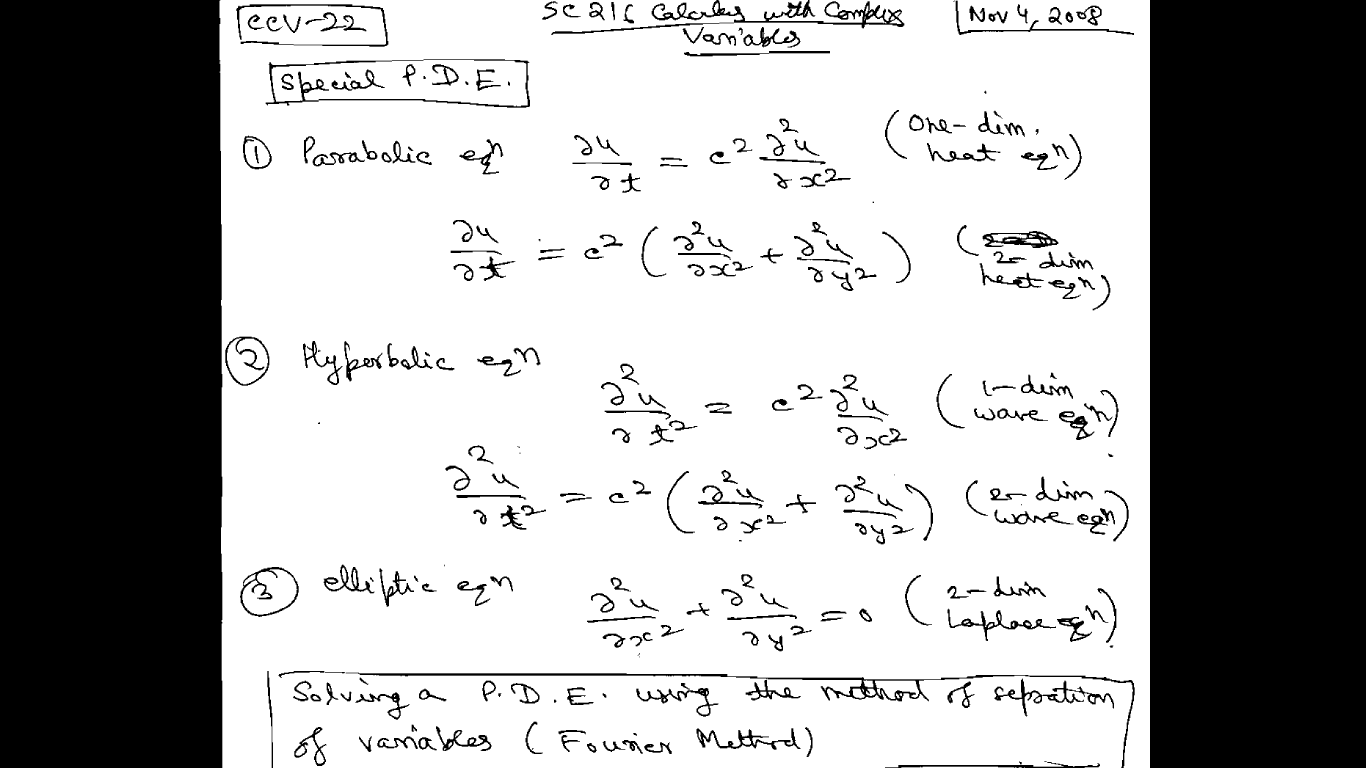 CCV-22 SC 216 Calculus with Complex Variables Nov 4, 2008
Special P.D.E.
① Parabolic eqn ∂u/∂t = c² ∂²u/∂x² (One-dim. heat eqn)
∂u/∂t = c² (∂²u/∂x² + ∂²u/∂y²) (2-dim heat eqn)
② Hyperbolic eqn
∂²u/∂t² = c² ∂²u/∂x² (1-dim wave eqn)
∂²u/∂t² = c² (∂²u/∂x² + ∂²u/∂y²) (2-dim wave eqn)
③ elliptic eqn ∂²u/∂x² + ∂²u/∂y² = 0 (2-dim Laplace eqn)
Solving a P.D.E. using the method of sepration
of variables (Fourier Method)